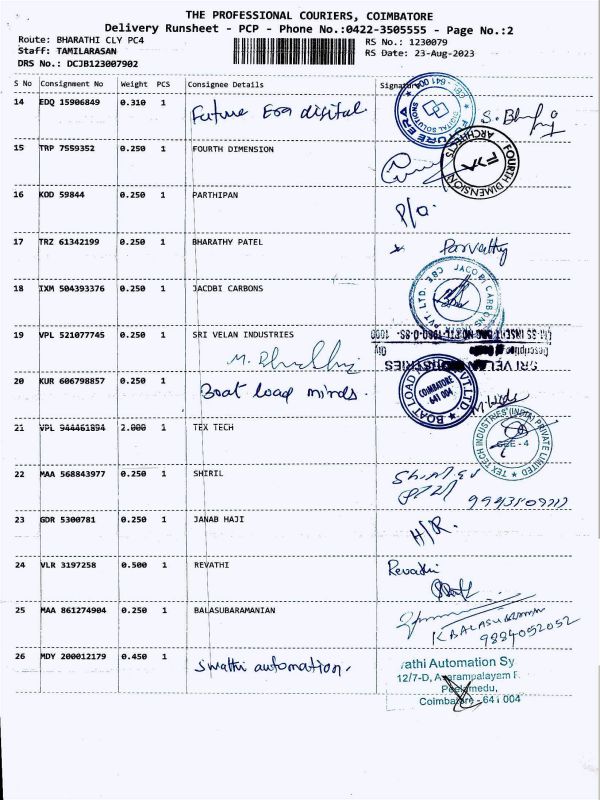 THE PROFESSIONAL COURIERS, COIMBATORE
Delivery Runsheet - PCP - Phone No.:0422-3505555 - Page No.:2
Route: BHARATHI CLY PC4 RS No.: 1230079
Staff: TAMILARASAN RS Date: 23-Aug-2023
DRS No.: DCJB123007902
S No Consignment No Weight PCS Consignee Details Signature
14 EDQ 15906849 0.310 1 Future Era digital
15 TRP 7559352 0.250 1 FOURTH DIMENSION
FOURTH DIMENSION ARCHITECTS
16 KOD 59844 0.250 1 PARTHIPAN P/O.
17 TRZ 61342199 0.250 1 BHARATHY PATEL Parvathy
18 IXM 504393376 0.250 1 JACDBI CARBONS
JACOBI CARBONS PVT. LTD. CBE
19 VPL 521077745 0.250 1 SRI VELAN INDUSTRIES
Description
Qty
SRI VELAN INDUSTRIES
20 KUR 606798857 0.250 1 Boat load minds.
BOAT LOAD PVT.LTD.
COIMBATORE
641 004
21 VPL 944461894 2.000 1 TEX TECH
TEX TECH INDUSTRIES (INDIA) PRIVATE LIMITED
22 MAA 568843977 0.250 1 SHIRIL
23 GDR 5300781 0.250 1 JANAB HAJI H/R.
24 VLR 3197258 0.500 1 REVATHI Revathi
25 MAA 861274904 0.250 1 BALASUBARAMANIAN
K BALASUBRAMANIAN
9884052052
26 MDY 200012179 0.450 1 Swathi automation.
athi Automation Sy
12/7-D, Avarampalayam
Peelamedu,
Coimbatore - 641 004